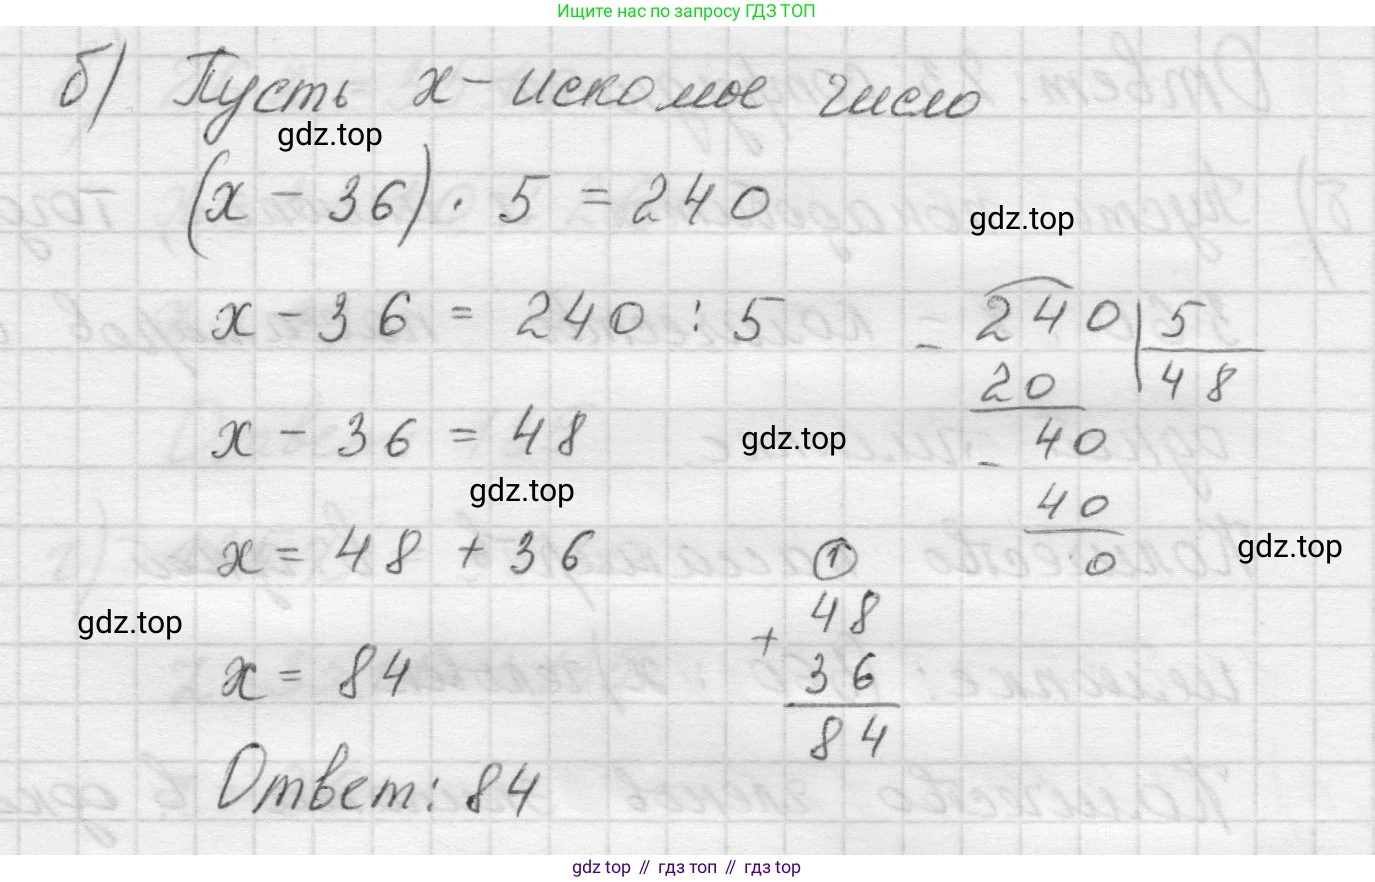 Ищите нас по запросу ГДЗ ТОП
б) Пусть x - искомое число
gdz.top
(x - 36) · 5 = 240
gdz.top
x - 36 = 240 : 5
- 240 | 5
20 | 48
x - 36 = 48
gdz.top
- 40
gdz.top
40
x = 48 + 36
0
gdz.top
1
gdz.top
48
+ 36
x = 84
84
Ответ: 84
gdz top // гдз топ // gdz top